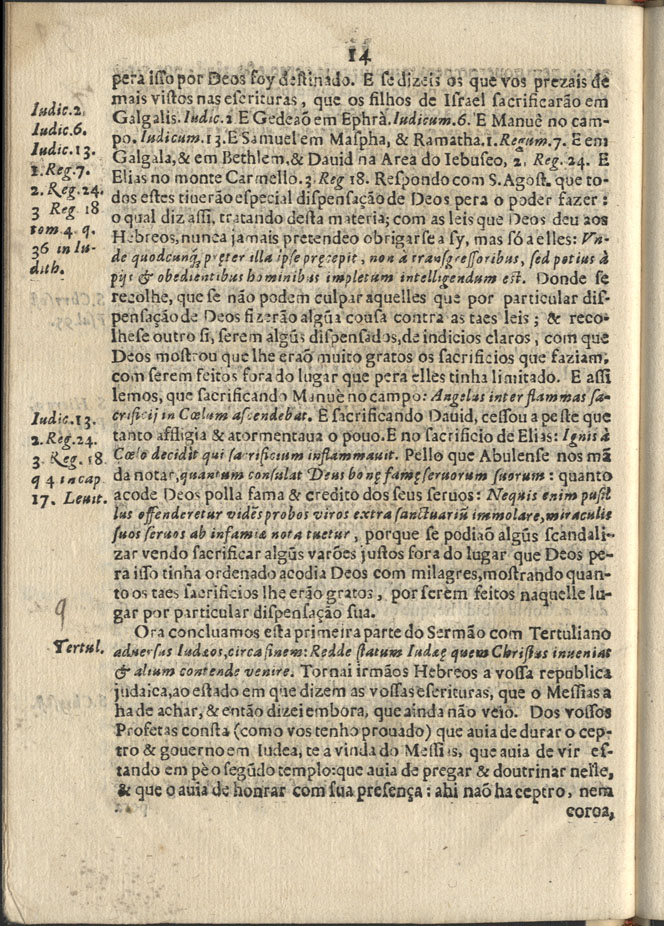 14
pera isso por Deos foy destinado. E se dizeis os que vos prezais de
mais vistos nas escrituras, que os filhos de Israel sacrificarão em
Galgalis. Iudic. 2 E Gedeaõ em Ephrà. Iudicum. 6. E Manuè no cam-
po. Iudicum. 13. E Samuel em Maspha, & Ramatha. 1. Regum. 7. E em
Galgala, & em Bethlem, & Dauid na Area do Iebuseo, 2. Reg. 24. E
Elias no monte Carmello. 3. Reg 18. Respondo com S. Agost. que to-
dos estes tiuerão especial dispensação de Deos pera o poder fazer:
o qual diz assi, tratando desta materia; com as leis que Deos deu aos
Hebreos, nunca jamais pretendeo obrigarse a sy, mas só a elles: Vn-
de quodcunq; pręter illa ipse pręcepit, non à transgressoribus, sed potius à
pijs & obedientibus hominibus impletum intelligendum est. Donde se
recolhe, que se não podem culpar aquelles que por particular dis-
pensação de Deos fizerão algũa cousa contra as taes leis; & reco-
lhese outro si, serem algũs dispensados, de indicios claros, com que
Deos mostrou que lhe eraõ muito gratos os sacrificios que faziam,
com serem feitos fora do lugar que pera elles tinha limitado. E assi
lemos, que sacrificando Manuè no campo: Angelus inter flammas sa-
crificij in Cœlum ascendebat. E sacrificando Dauid, cessou a peste que
tanto affligia & atormentaua o pouo. E no sacrificio de Elias: Ignis à
Cœlo decidit qui sacrificium inflammauit. Pello que Abulense nos mã
da notar, quantum consulat Deus bonę famę seruorum suorum: quanto
acode Deos polla fama & credito dos seus seruos: Nequis enim pusil
lus offenderetur vidẽs probos viros extra sanctuariũ immolare, miraculis
suos seruos ab infamiæ nota tuetur, porque se podiaõ algũs scandali-
zar vendo sacrificar algũs varões justos fora do lugar que Deos pe-
ra isso tinha ordenado acodia Deos com milagres, mostrando quan-
to os taes sacrificios lhe erão gratos, por serem feitos naquelle lu-
gar por particular dispensação sua.
Ora concluamos esta primeira parte do Sermão com Tertuliano
aduersus Iudæos, circa finem: Redde statum Iudæę quem Christus inueniat
& alium contende venire. Tornai irmãos Hebreos a vossa republica
judaica, ao estado em que dizem as vossas escrituras, que o Messias a
ha de achar, & então dizei embora, que ainda não veio. Dos vossos
Profetas consta (como vos tenho prouado) que auia de durar o cep-
tro & gouerno em Iudea, te a vinda do Messias, que auia de vir es-
tando em pè o segũdo templo: que auia de pregar & doutrinar nelle,
& que o auia de honrar com sua presença: ahi naõ ha ceptro, nem
coroa,
Iudic. 2.
Iudic. 6.
Iudic. 13.
1. Reg. 7.
2. Reg. 24.
3 Reg 18
tom 4. q.
36 in Iu-
dith.
Iudic. 13.
2. Reg. 24.
3. Reg. 18.
q 4 in cap
17. Leuit.
9
Tertul.